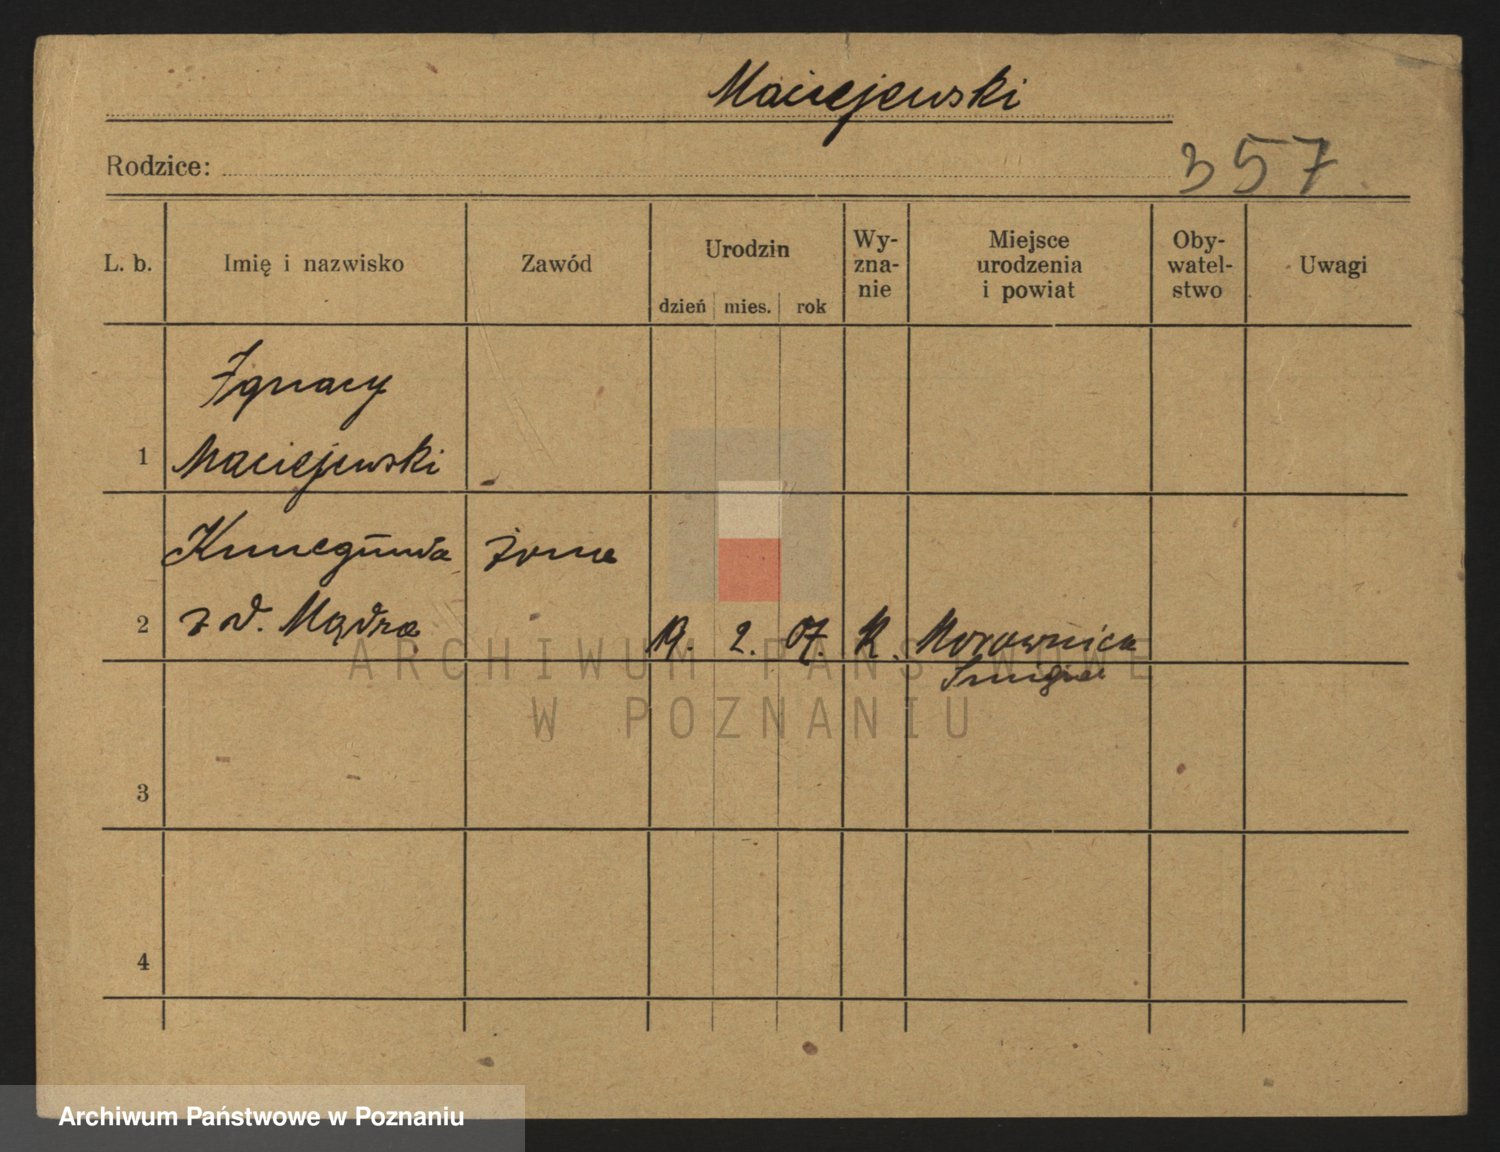 Maciejewski
Rodzice:
357
L. b. Imię i nazwisko Zawód Urodzin Wy- Miejsce Oby- Uwagi
zna- urodzenia watel-
dzień mies. rok nie i powiat stwo
Ignacy
1 Maciejewski
Kunegunda żona
2 z d. Mądra 19. 2. 07. R. Morownica
Śmigiel
3
4
ARCHIWUM PAŃSTWOWE
W POZNANIU
Archiwum Państwowe w Poznaniu